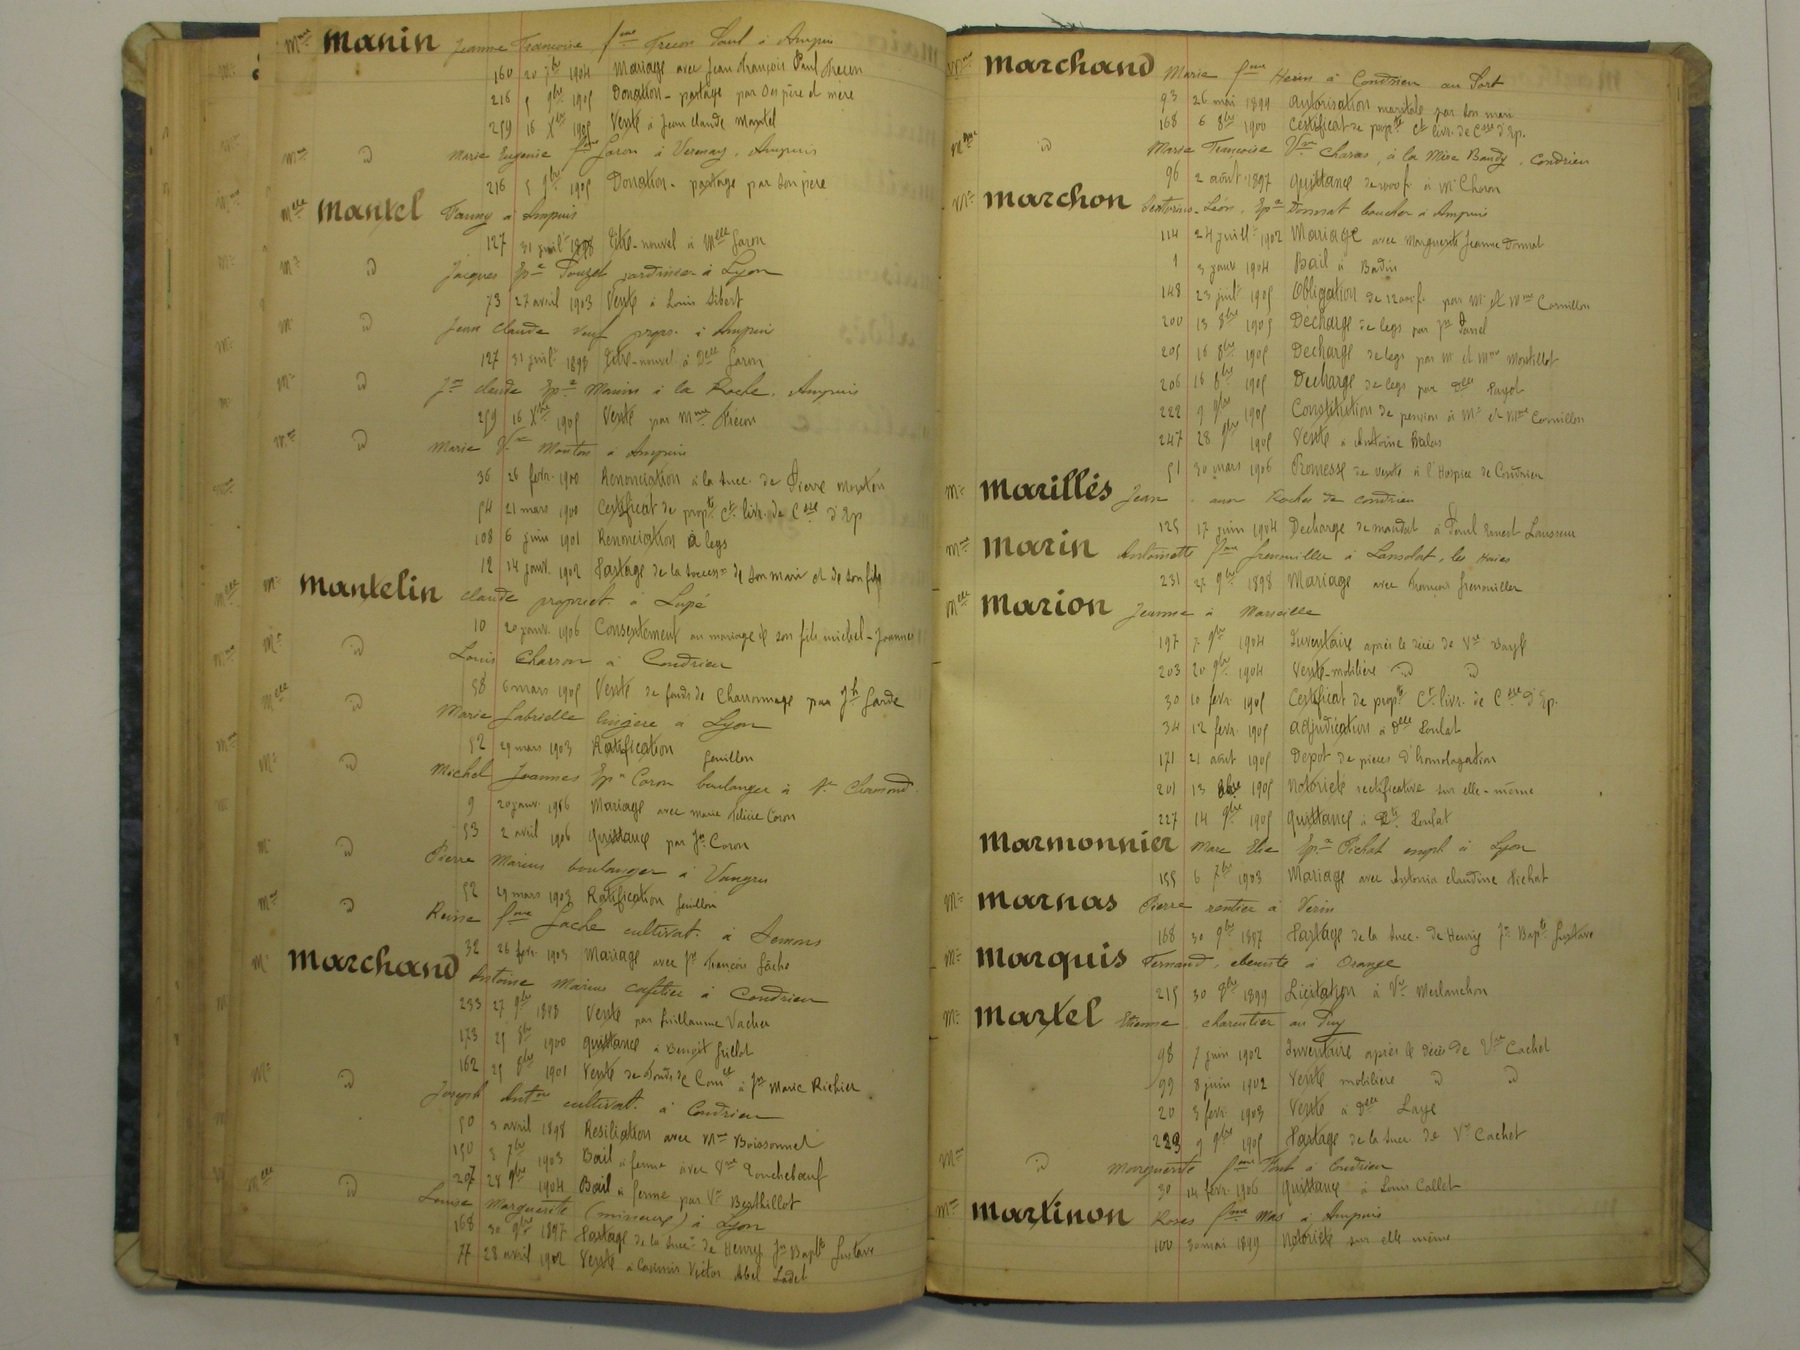 Mme Manin Jeanne Françoise fme Frecon Paul à Ampuis
160 20 7bre 1904 Mariage avec Jean François Paul Frecon
216 5 9bre 1905 Donation-partage par ses père et mere
259 16 Xbre 1905 Vente à Jean Claude Mantel
Mme d Marie Eugenie fme Garon à Verenay, Ampuis
216 5 9bre 1905 Donation-partage par son père
Melle Mantel Fanny à Ampuis
127 31 juil. 1898 Titre-nouvel à Melle Garon
Mr d Jacques Epx Pouzet jardinier à Lyon
73 27 avril 1903 Vente à Louis Gibert
Mr d Jean Claude veuf propr. à Ampuis
127 31 juil. 1898 Titre-nouvel à Delle Garon
Mr d Jn Claude Epx Manin à la Roche, Ampuis
259 16 Xbre 1905 Vente par Mme Frecon
Mme d Marie Vve Monton à Ampuis
36 26 fevr. 1900 Renonciation à la succ. de Pierre Monton
54 21 mars 1900 Certificat de propté Ct livr. de Csse d'Ep
108 6 juin 1901 Renonciation à legs
12 14 janv. 1902 Partage de la success. de son mari et de son fils
Mr Mantelin Claude propriet. à Lupé
10 20 janv. 1906 Consentement au mariage de son fils Michel-Joannes
Mr d Louis Charron à Condrieu
58 6 mars 1905 Vente de fonds de Charronnage par Jh Garde
Melle d Marie Gabrielle lingère à Lyon
52 29 mars 1903 Ratification Jouillon
Mr d Michel Joannes Epx Coron boulanger à St Chamond
9 20 janv. 1906 Mariage avec Marie Félicie Coron
53 2 avril 1906 Quittance par Jn Coron
Mr d Pierre Marius boulanger à Vaugris
52 29 mars 1903 Ratification Jouillon
Mme d Reine fme Gache cultivat. à Semons
32 26 fevr. 1903 Mariage avec Jn François Gache
Mr Marchand Antoine Marius cafetier à Condrieu
233 27 9bre 1898 Vente par Guillaume Vacher
173 25 8bre 1900 Quittance à Benoît Grillot
162 25 8bre 1901 Vente de fonds de Comce à Jn Marie Richier
Mr d Joseph Antne cultivat. à Condrieu
50 3 avril 1898 Resiliation avec Mme Boissonnet
150 5 7bre 1903 Bail à ferme avec Vve Tronchebœuf
207 28 9bre 1904 Bail à ferme par Vve Berthillot
Melle d Louise Marguerite (mineure) à Lyon
168 30 9bre 1897 Partage de la succ. de Henry Jn Bapte Gustave
77 28 avril 1902 Vente à Casimir Victor Abel Ladet
Mme Marchand Marie fme Henin à Condrieu au Port
93 26 mai 1899 Autorisation maritale par son mari
168 6 8bre 1900 Certificat de propté Ct livr. de Csse d'Ep.
Mme d Marie Françoise Vve Charas, à la Mise Bandy, Condrieu
96 2 août 1897 Quittance de 1000 f. à Mr Charon
Mr Marchon Léon, Epx Donnat boucher à Ampuis
114 24 juill. 1902 Mariage avec Marguerite Jeanne Donnat
1 3 janv. 1904 Bail à Badin
148 23 juil. 1905 Obligation de 1200 f. par Mr et Mme Cornillon
200 13 8bre 1905 Decharge de legs par Jn Panel
205 16 8bre 1905 Decharge de legs par Mr et Mme Montillot
206 16 8bre 1905 Decharge de legs par Delle Payot
222 9 9bre 1905 Constitution de pension à Mr et Mme Cornillon
247 28 9bre 1905 Vente à Antoine Balas
51 30 mars 1906 Promesse de vente à l'Hospice de Condrieu
Mr Marillés Jean, aux Roches de Condrieu
125 17 juin 1904 Decharge de mandat à Paul Ernest Lavesseur
Mme Marin Antoinette fme Grenouiller à Lansolat, les Haies
231 9bre 1898 Mariage avec François Grenouiller
Melle Marion Jeanne à Marseille
197 7 9bre 1904 Inventaire après le décès de Vve Bayle
203 20 9bre 1904 Vente-mobilière d d
30 10 fevr. 1905 Certificat de propté Ct livr. de Csse d'Ep.
34 12 fevr. 1905 Adjudication à Delle Poulat
171 21 août 1905 Depot de pièces d'homologation
201 13 8bre 1905 Notoriété rectificative sur elle-même
227 14 9bre 1905 Quittance à Poulat
Marmonnier Marc Elie Epx Pichat empl. à Lyon
155 6 7bre 1903 Mariage avec Antonia Claudine Pichat
Mr Marnas Pierre rentier à Verin
168 30 9bre 1897 Partage de la succ. de Henry Jn Bapte Gustave
Mr Marquis Fernand, ebeniste à Orange
215 30 8bre 1899 Licitation à Vve Merlanchon
Mr Martel Etienne charpentier au Puy
98 7 juin 1902 Inventaire après le décès de Vve Cachet
99 8 juin 1902 Vente mobilière d d
20 3 fevr. 1903 Vente à Delle Laye
223 9 9bre 1905 Partage de la succ. de Vve Cachet
Mme d Marguerite fme Paret à Condrieu
30 14 fevr. 1906 Quittance à Louis Callet
Mme Martinon Roses fme Mas à Ampuis
100 30 mai 1899 Notoriété sur elle même